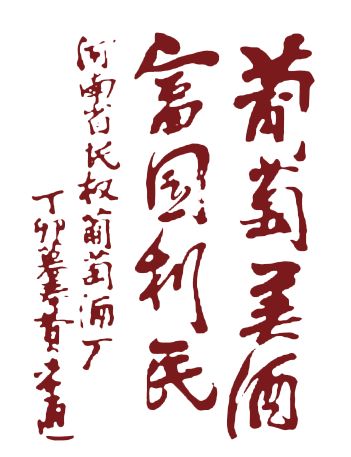 葡萄美酒
富国利民
河南省民权葡萄酒厂
丁卯暮春黄